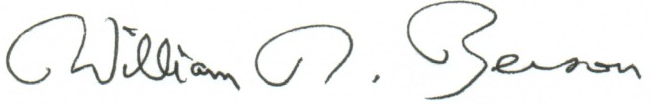 William Benson